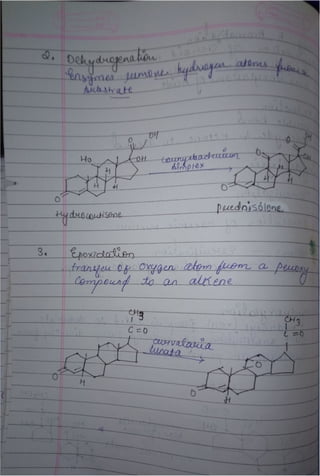 2. Dehydrogenation
Enzymes remove hydrogen atoms from a
substrate
O OH
HO OH
Corynebacterium
simplex
O
H H
H
O
Hydrocortisone
prednisolene
3. Epoxidation
transfer of Oxygen atom from a peroxy
Compound to an alkene
CH3
C=O
CH3
C=O
curvularia
lunata
O
O
H
O
H